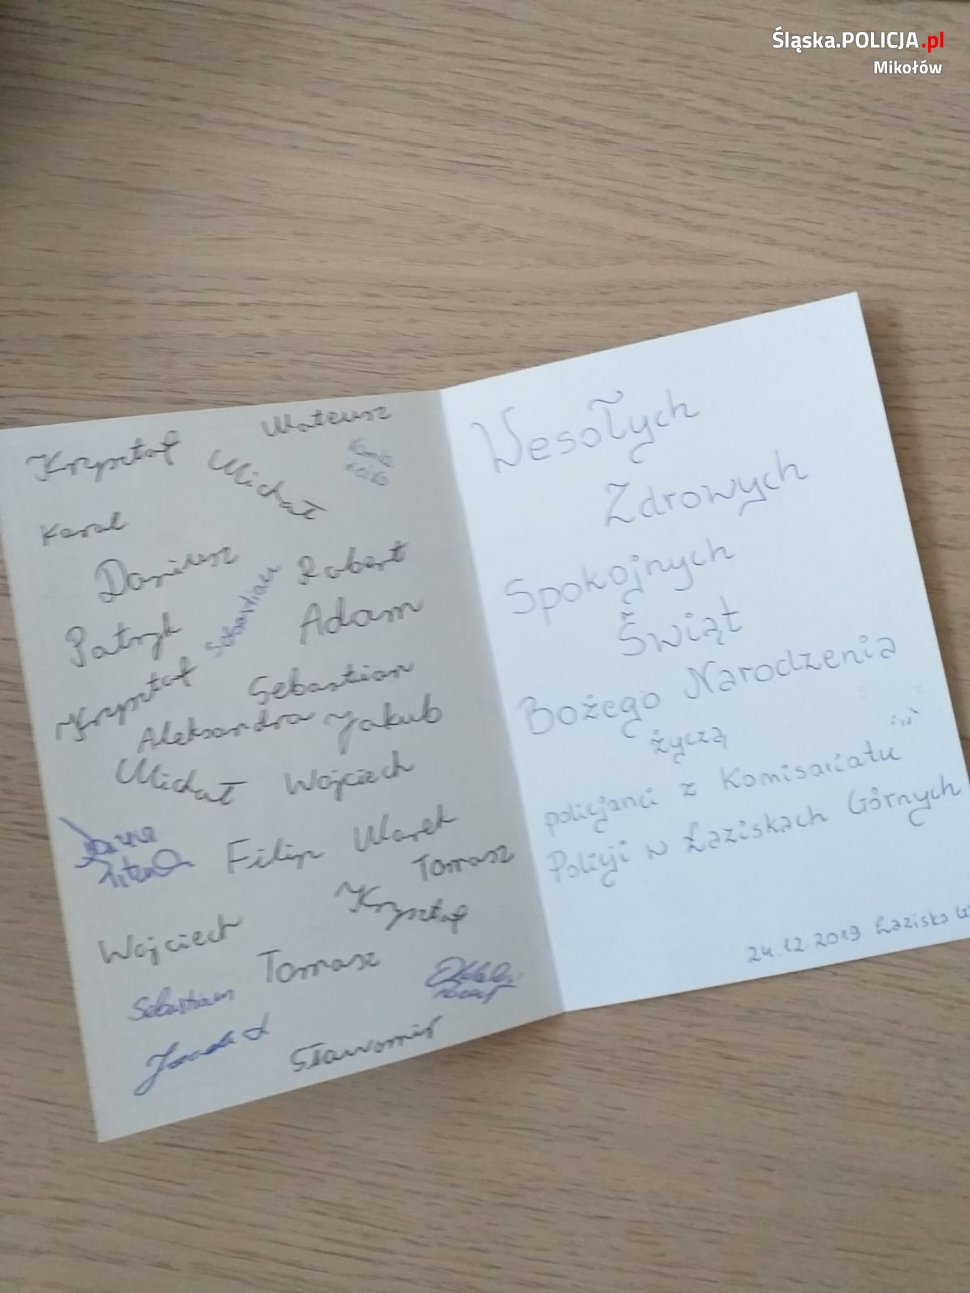 Śląska.POLICJA.pl
Mikołów
Krzysztof Mateusz
Michał
Karol
Dariusz Robert
Sebastian
Patryk Adam
Krzysztof Sebastian
Aleksandra Jakub
Michał Wojciech
Filip Marek
Tomasz
Wojciech Krzysztof
Tomasz
Sebastian
Sławomir
Wesołych
Zdrowych
Spokojnych
Świąt
Bożego Narodzenia
życzą
policjanci z Komisariatu
Policji w Łaziskach Górnych
24.12.2019 Łaziska